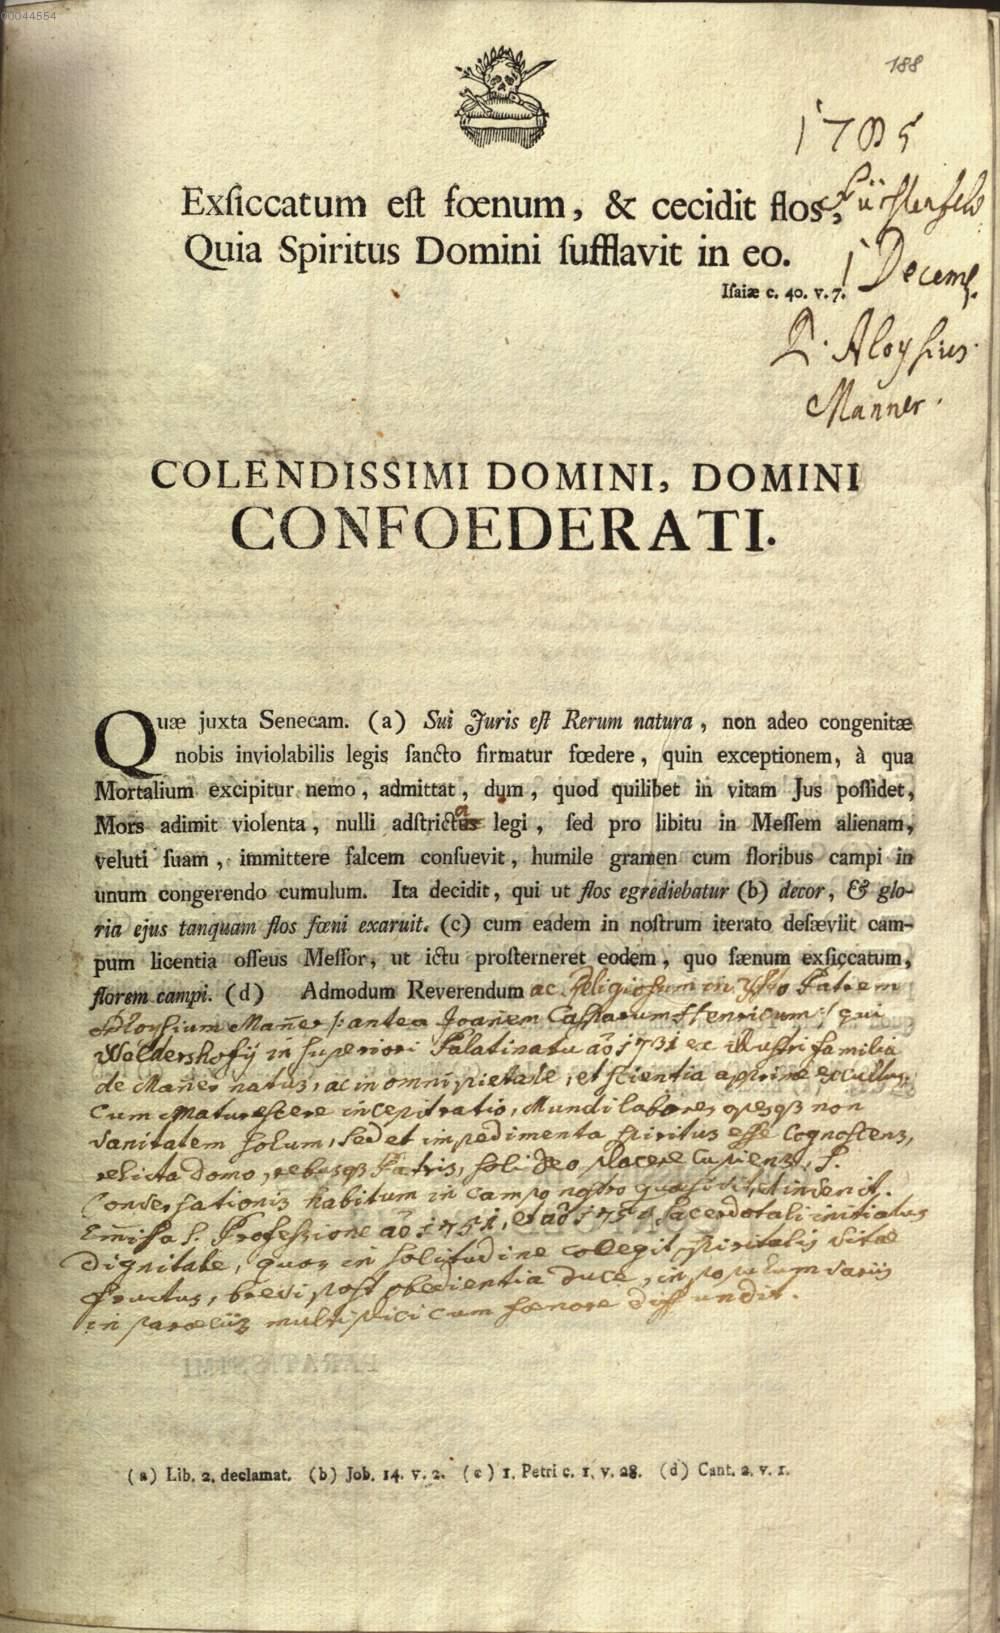 00044554
188
1785
Fürstenfeld
1 Decemb.
P. Aloysius
Manner.
Exſiccatum eſt fœnum, & cecidit flos,
Quia Spiritus Domini ſufflavit in eo.
Iſaiæ c. 40. v. 7.
COLENDISSIMI DOMINI, DOMINI
CONFOEDERATI.
Quæ juxta Senecam. (a) Sui Juris eſt Rerum natura, non adeo congenitæ
nobis inviolabilis legis ſancto firmatur fœdere, quin exceptionem, à qua
Mortalium excipitur nemo, admittat, dum, quod quilibet in vitam Jus poſſidet,
Mors adimit violenta, nulli adſtricta legi, ſed pro libitu in Meſſem alienam,
veluti ſuam, immittere falcem conſuevit, humile gramen cum floribus campi in
unum congerendo cumulum. Ita decidit, qui ut flos egrediebatur (b) decor, & glo-
ria ejus tanquam flos fœni exaruit. (c) cum eadem in noſtrum iterato deſæviit cam-
pum licentia oſſeus Meſſor, ut ictu proſterneret eodem, quo fænum exſiccatum,
florem campi. (d) Admodum Reverendum ac Religiosum in Xsto Patrem
Aloysium Mañer /: antea Joañem Casparum Henricum :/ qui
Waldershofij in superiori Palatinatu aõ 1731 ex illustri familia
de Mañer natus, ac in omni pietate, et scientia apprime excultus,
cum maturescere incepit ratio, Mundi labores opesq3 non
vanitatem solum, sed et impedimenta spiritus esse cognoscens,
relicta domo, rebusq3 Patris, soli Deo placere cupiens, S.
Conversationis habitum in campo nostro quæsivit, et invenit.
Emissa S. Professione aõ 1751, et aõ Sacerdotali initiatus
dignitate, quos in solitudine collegit spiritalis vitæ
fructus, brevi post obedientia duce, in populum variis
in parœciis multiplici cum fœnore diffundit.
(a) Lib. 2. declamat. (b) Job. 14. v. 2. (c) 1. Petri c. 1. v. 28. (d) Cant. 2. v. 1.